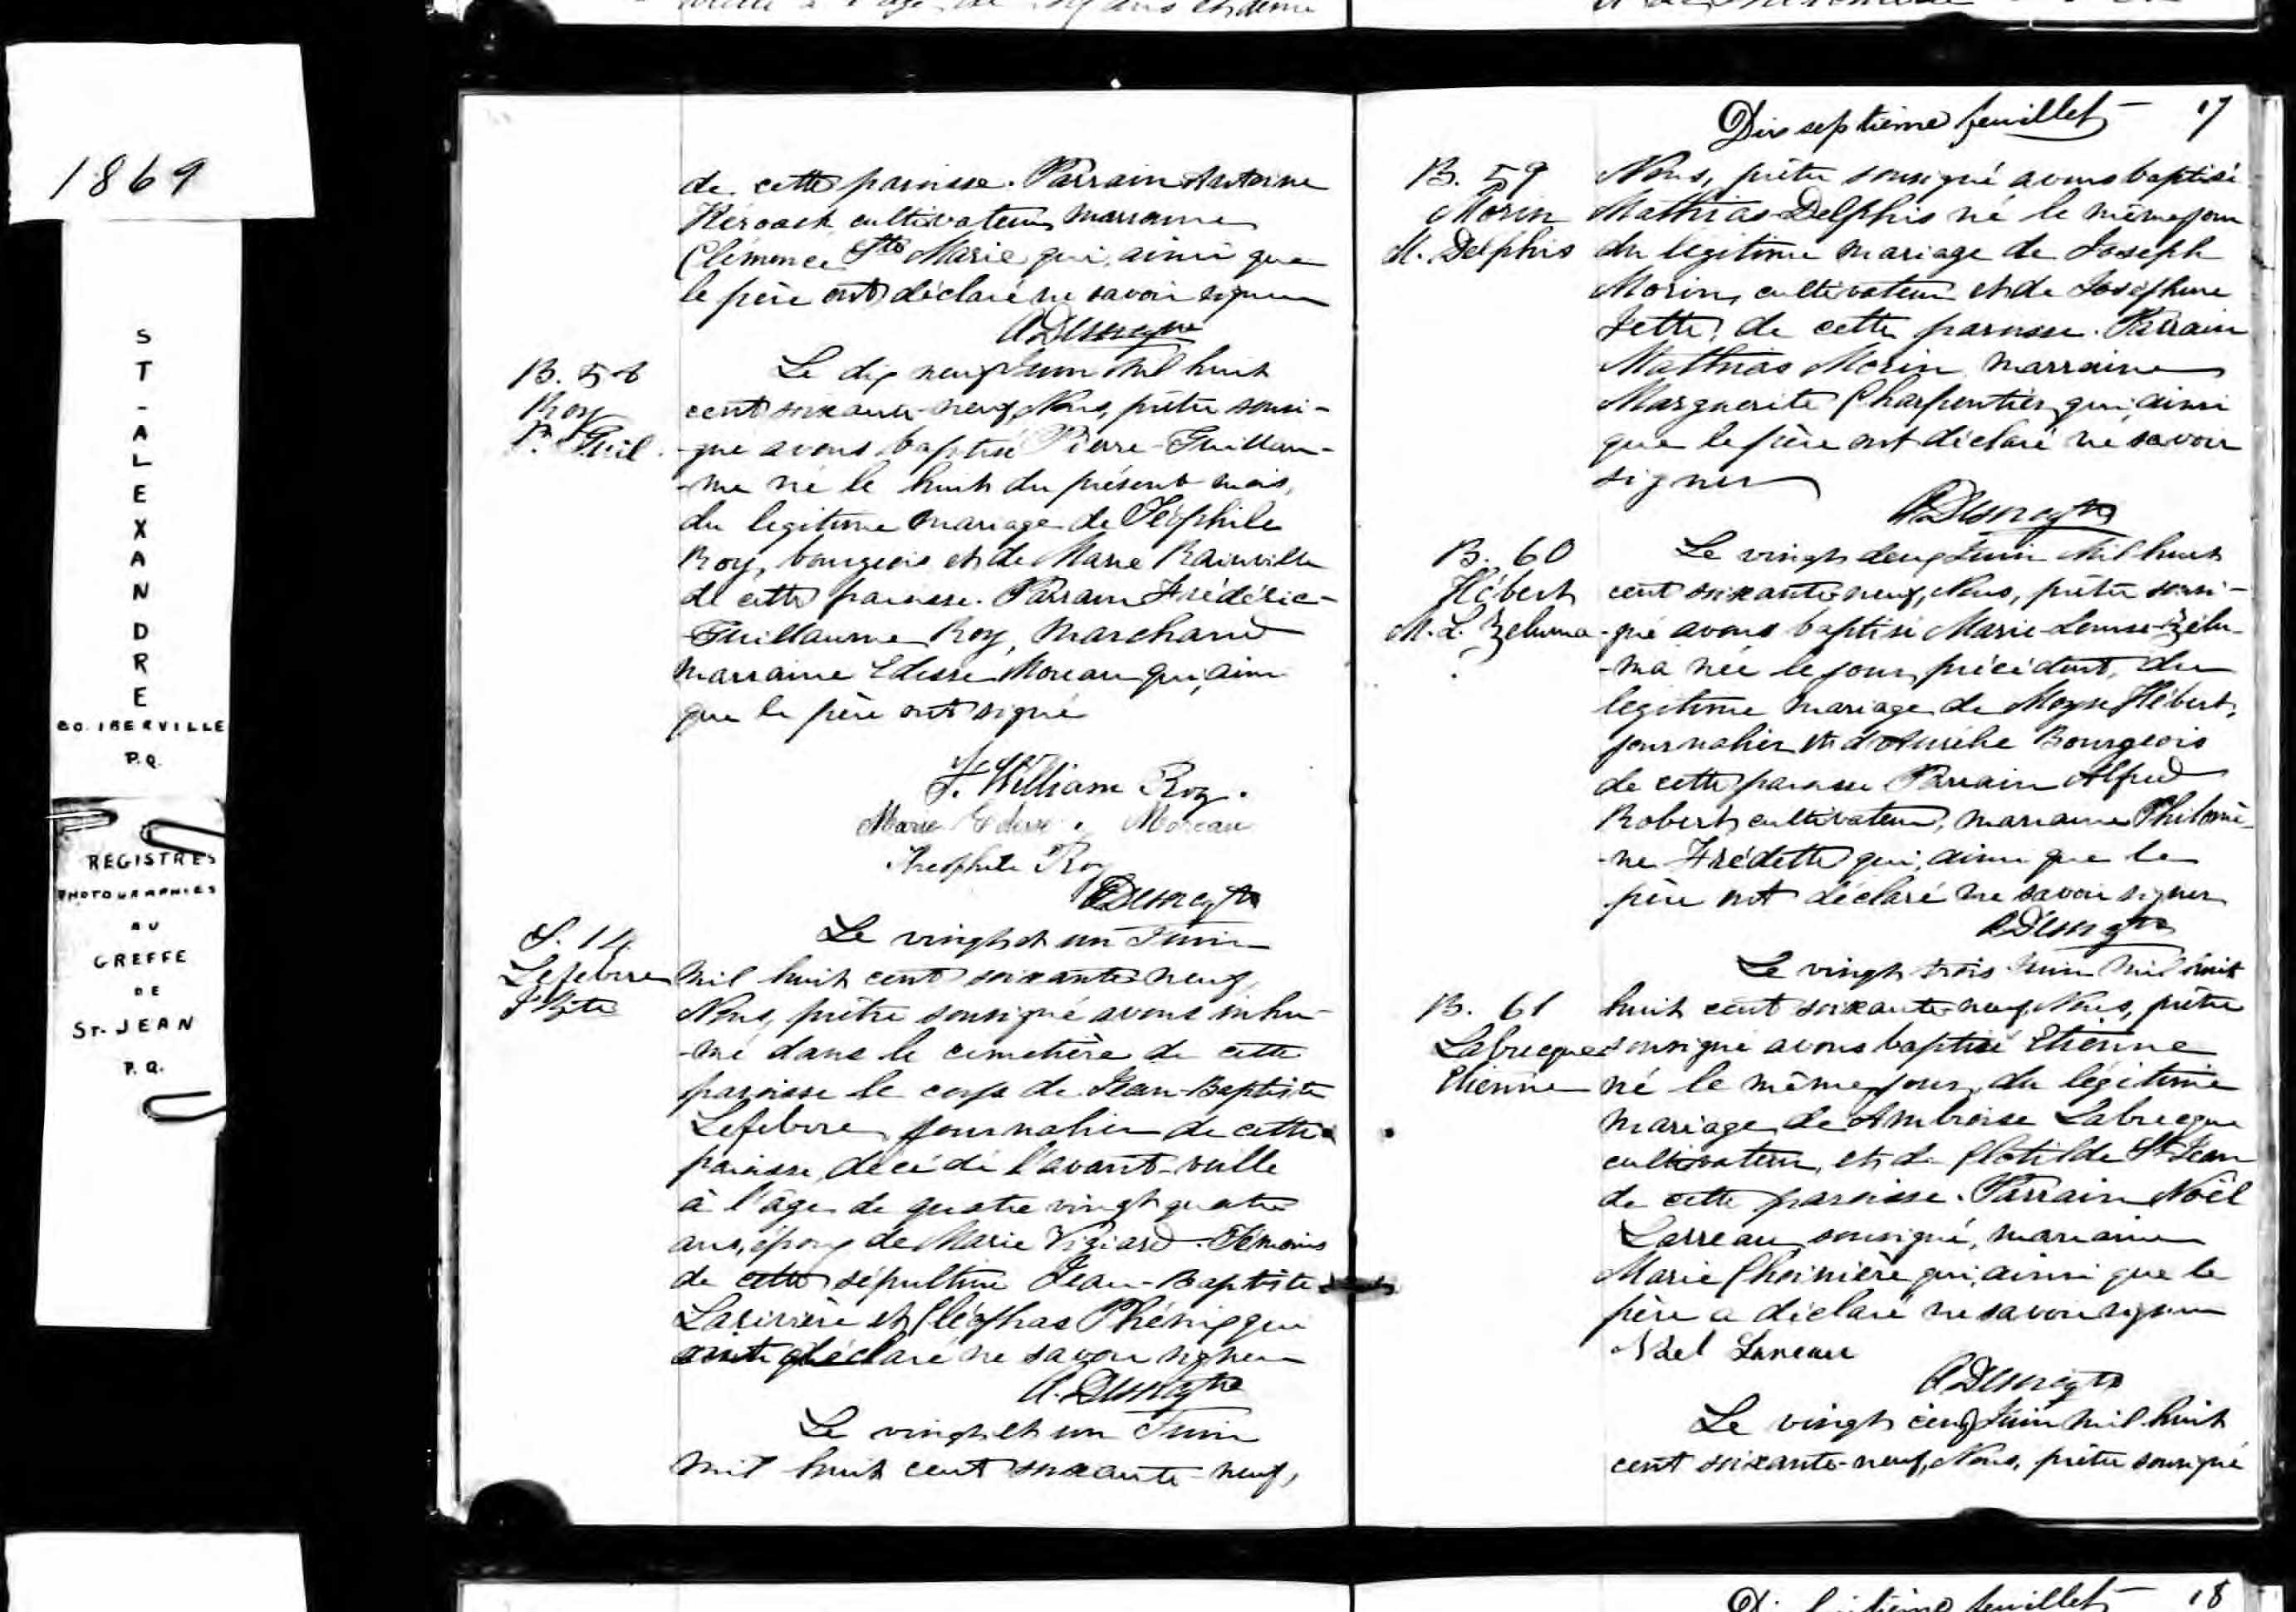 1869
ST-ALEXANDRE
CO. IBERVILLE
P.Q.
REGISTRES
PHOTOGRAPHIES
AU
GREFFE
DE
ST-JEAN
P.Q.
de cette paroisse. Parrain Antoine
Kéroack cultivateur, marraine
Clémence Ste Marie qui, ainsi que
le père ont déclaré ne savoir signer
B. 58
Roy
P. Guil.
Le dix neuf Juin mil huit
cent soixante-neuf, Nous, prêtre sousi-
-gné avons baptisé Pierre-Guillau-
-me né le huit du présent mois,
du legitime mariage de Téophile
Roy, bourgeois et de Marie Rainville
de cette paroisse. Parrain Frédéric-
Guillaume Roy, Marchand
marraine Edesse Moreau qui, ainsi
que le père ont signé
F. William Roy.
Marie Edesse Moreau
Theophile Roy
S. 14
Lefebvre
J Bte
Le vingt et un Juin
mil huit cent soixante neuf,
Nous, prêtre sousigné avons inhu-
-mé dans le cimetière de cette
paroisse le corps de Jean-Baptiste
Lefebvre, journalier de cette
paroisse, décédé l'avant-veille
à l'âge de quatre vingt quatre
ans, époux de Marie Viziard. Témoins
de cette sépulture Jean-Baptiste
Larivière et Cléophas Phénix qui
ont déclaré ne savoir signer
Le vingt et un Juin
mil huit cent soixante-neuf,
Dix septième feuillet 17
B. 59
Morin
M. Delphis
Nous, prêtre sousigné avons baptisé
Mathias-Delphis né le même jour
du légitime mariage de Joseph
Morin, cultivateur et de Josephine
Jetté, de cette paroisse. Parrain
Mathias Morin, marraine
Marguerite Charpentier, qui ainsi
que le père ont déclaré ne savoir
signer
B. 60
Hébert
M. L. Zeluma
Le vingt deux Juin Mil huit
cent soixante neuf, Nous, prêtre sousi-
-gné avons baptisé Marie-Louise-Zélu-
-ma née le jour précédent, du
legitime mariage de Moyse Hébert,
journalier et d'Aurélie Bourgeois
de cette paroisse Parrain Alfred
Robert, cultivateur, marraine Philomè-
-ne Frédette qui, ainsi que le
père ont déclaré ne savoir signer
B. 61
Labrecque
Etienne
Le vingt trois Juin mil huit
huit cent soixante-neuf, Nous, prêtre
sousigné avons baptisé Etienne
né le même jour, du légitime
mariage de Ambroise Labrecque
cultivateur, et de Clotilde St Jean
de cette paroisse. Parrain Noël
Larreau, sousigné, marraine
Marie Choinière qui, ainsi que le
père a déclaré ne savoir signer
Noel Lareau
Le vingt cinq Juin mil huit
cent soixante-neuf, Nous, prêtre sousigné
feuillet 18